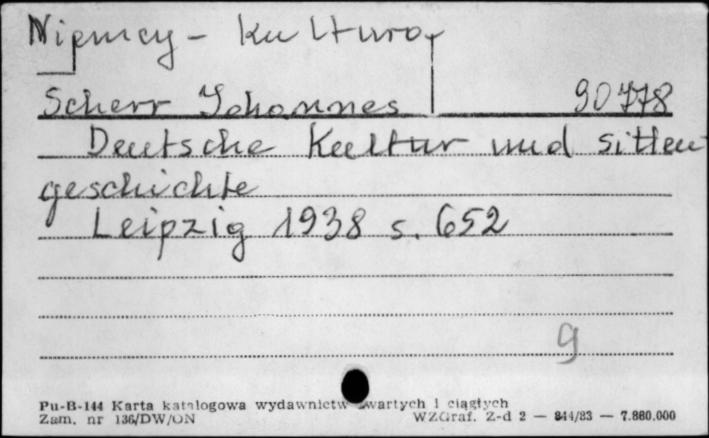 Niemcy - Kultura
Scherr Johannes 90778
Deutsche Kultur und Sitten
geschichte
Leipzig 1938 s. 652
9
Pu-B-144 Karta katalogowa wydawnictw zwartych i ciągłych
Zam. nr 136/DW/ON WZGraf. Z-d 2 — 844/83 — 7.880.000